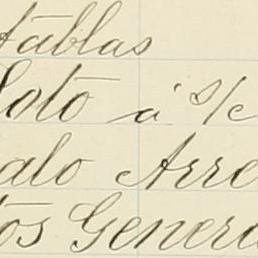 tablas
loto a s/c
alo Arre
tos Genera